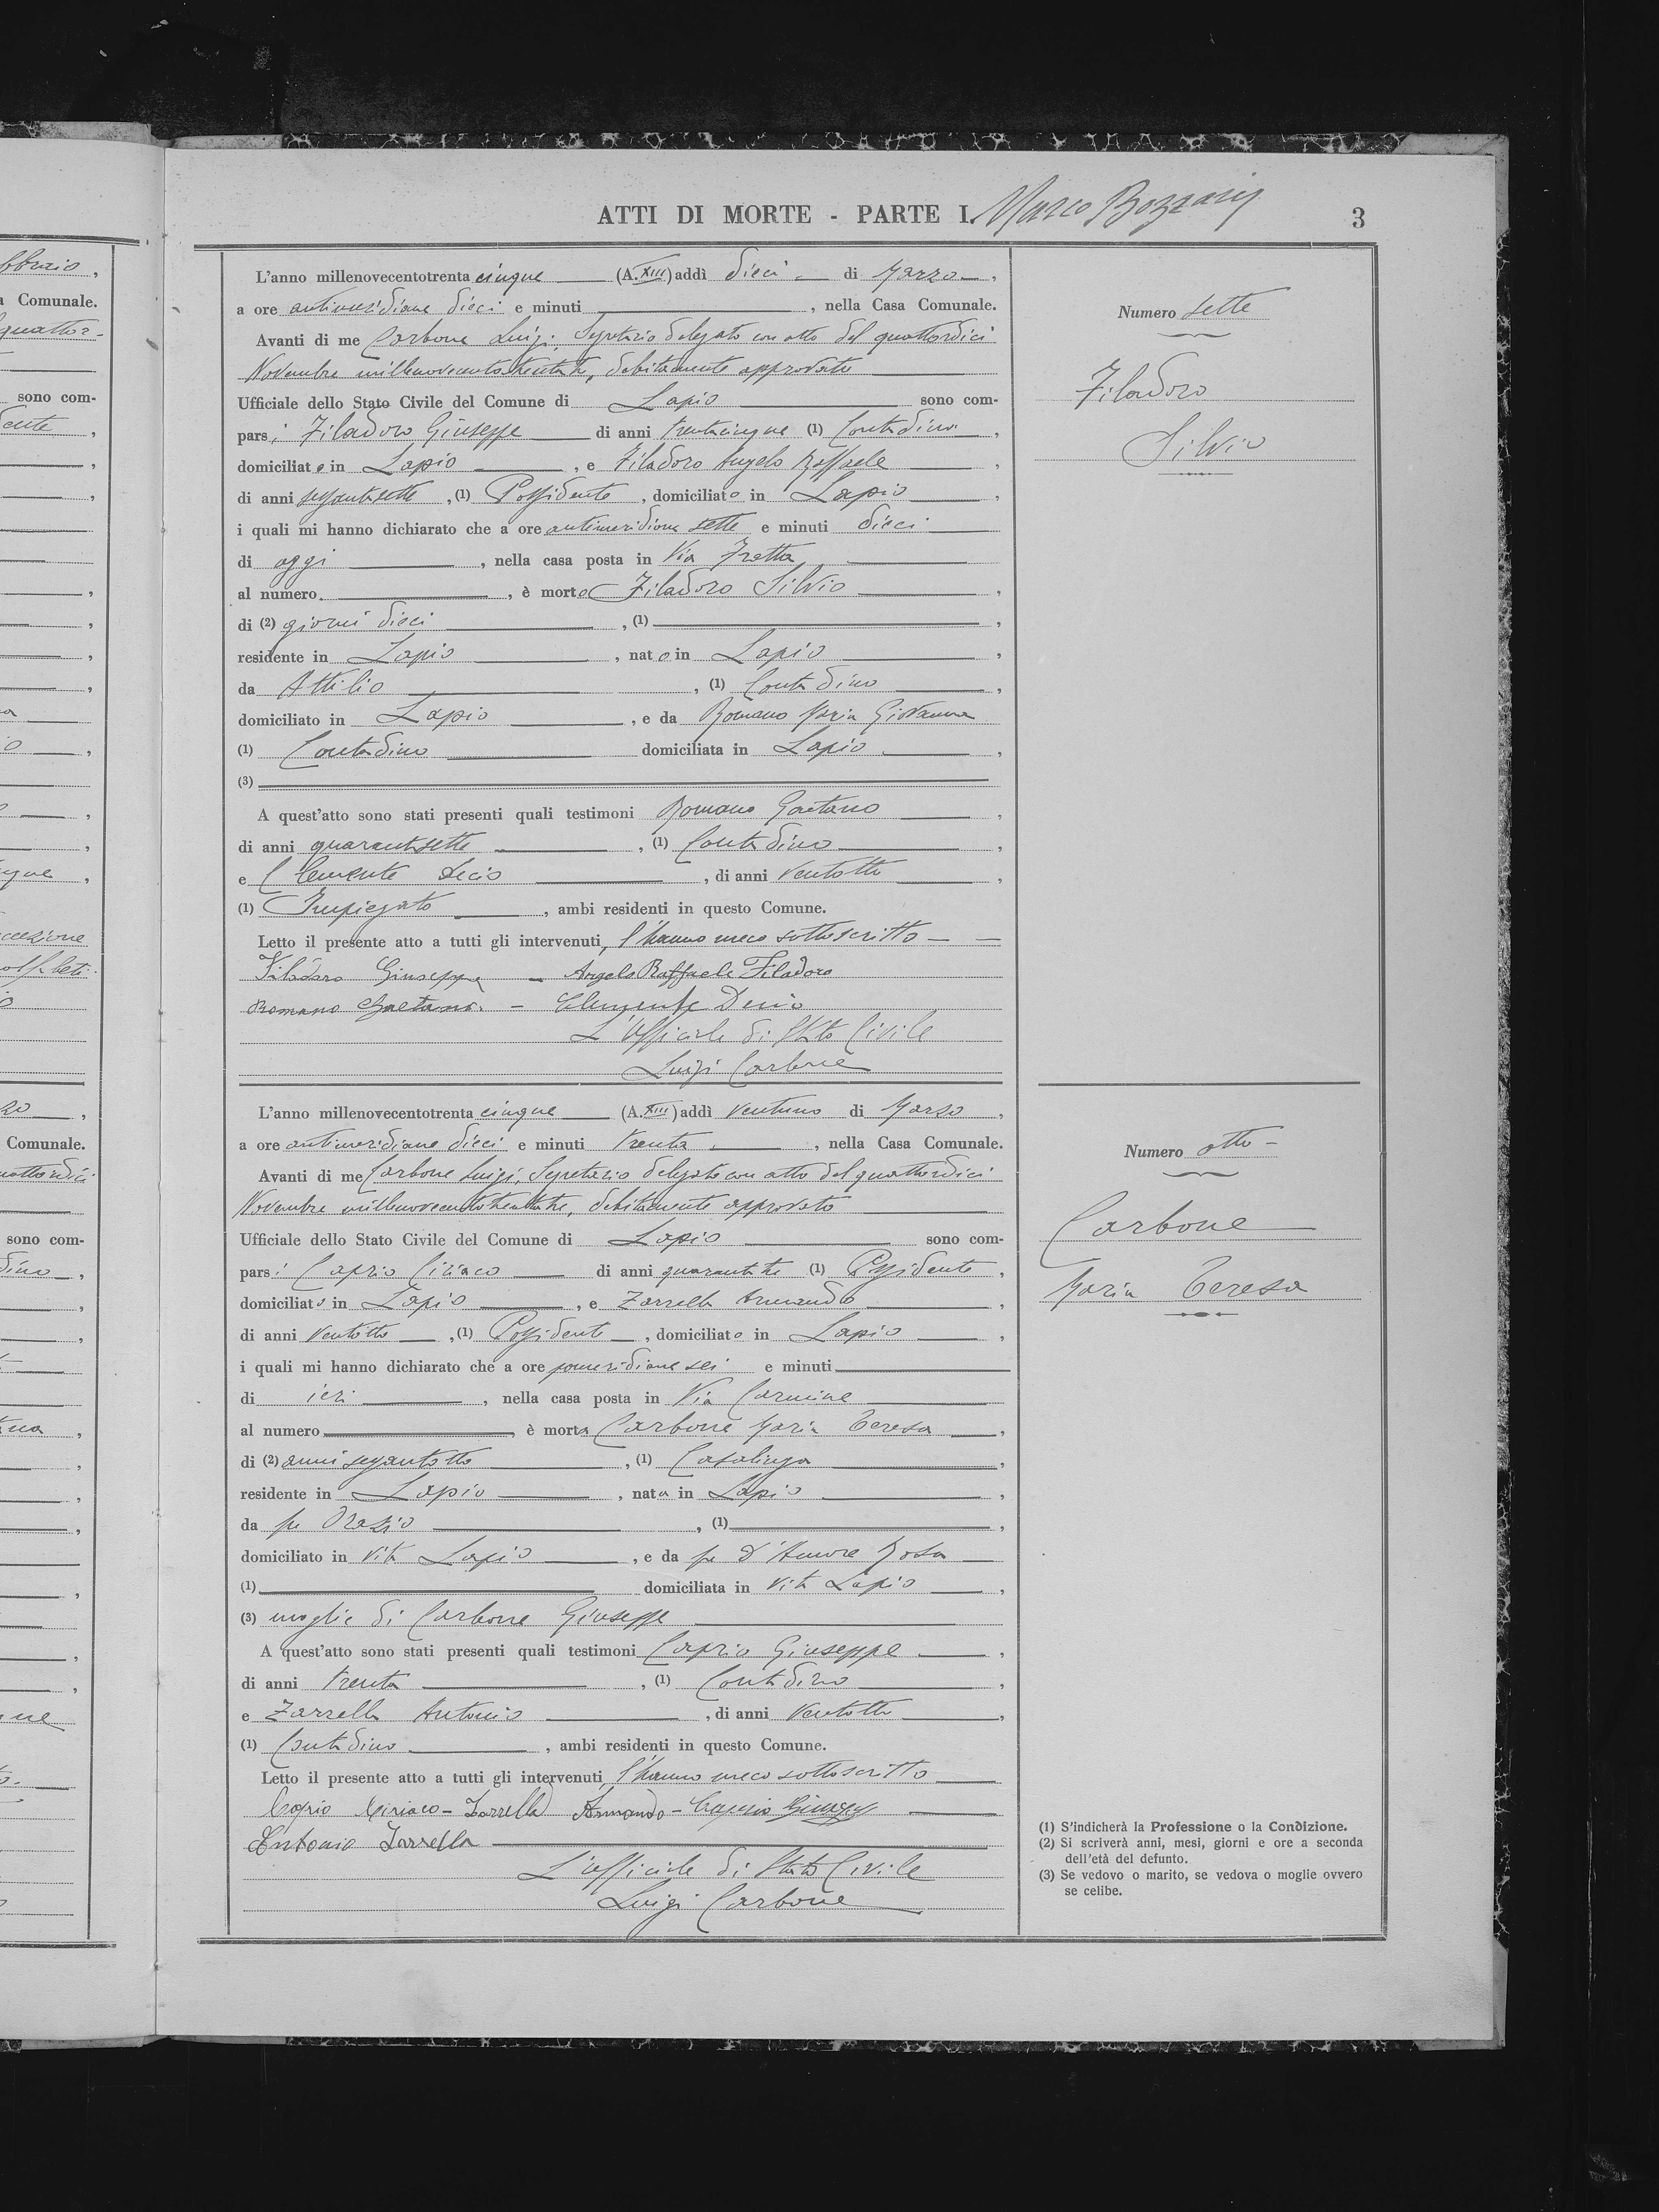 ATTI DI MORTE - PARTE I. Marco Bozzaris
3
L'anno millenovecentotrenta cinque (A. XIII) addì dieci di Marzo,
a ore antimeridiane dieci e minuti , nella Casa Comunale.
Avanti di me Carbone Luigi, Segretario delegato con atto del quattordici
Novembre millenovecentotrentatre, debitamente approvato
Ufficiale dello Stato Civile del Comune di Lapio sono com-
parsi Filadoro Giuseppe di anni trentacinque (1) Contadino,
domiciliato in Lapio, e Filadoro Angelo Raffaele,
di anni sessantasette, (1) Possidente, domiciliato in Lapio,
i quali mi hanno dichiarato che a ore antimeridiane sette e minuti dieci
di oggi, nella casa posta in Via Fratta
al numero , è morto Filadoro Silvio,
di (2) giorni dieci, (1) ,
residente in Lapio, nato in Lapio,
da Attilio, (1) Contadino,
domiciliato in Lapio, e da Romano Maria Giovanna
(1) Contadina domiciliata in Lapio,
(3)
A quest'atto sono stati presenti quali testimoni Romano Gaetano,
di anni quarantasette, (1) Contadino,
e Clemente Decio, di anni ventotto,
(1) Impiegato, ambi residenti in questo Comune.
Letto il presente atto a tutti gli intervenuti, l'hanno meco sottoscritto
Filadoro Giuseppe - Angelo Raffaele Filadoro
Romano Gaetano. - Clemente Decio
L'Ufficiale di Stato Civile
Luigi Carbone
Numero sette
Filadoro
Silvio
L'anno millenovecentotrenta cinque (A. XIII) addì ventuno di Marzo,
a ore antimeridiane dieci e minuti trenta, nella Casa Comunale.
Avanti di me Carbone Luigi, Segretario delegato con atto del quattordici
Novembre millenovecentotrentatre, debitamente approvato
Ufficiale dello Stato Civile del Comune di Lapio sono com-
parsi Caprio Ciriaco di anni quarantatre (1) Possidente,
domiciliato in Lapio, e Zarrella Armando,
di anni ventotto, (1) Possidente, domiciliato in Lapio,
i quali mi hanno dichiarato che a ore pomeridiane sei e minuti
di ieri, nella casa posta in Via Carmine
al numero , è morta Carbone Maria Teresa,
di (2) anni sessantotto, (1) Casalinga,
residente in Lapio, nata in Lapio,
da fu Orazio, (1) ,
domiciliato in vita Lapio, e da fu D'Amore Rosa
(1) domiciliata in vita Lapio,
(3) moglie di Carbone Giuseppe
A quest'atto sono stati presenti quali testimoni Caprio Giuseppe,
di anni trenta, (1) Contadino,
e Zarrella Antonio, di anni ventotto,
(1) Contadino, ambi residenti in questo Comune.
Letto il presente atto a tutti gli intervenuti, l'hanno meco sottoscritto
Caprio Ciriaco - Zarrella Armando - Caprio Giuseppe
Antonio Zarrella
L'ufficiale di Stato Civile
Luigi Carbone
Numero otto
Carbone
Maria Teresa
(1) S'indicherà la Professione o la Condizione.
(2) Si scriverà anni, mesi, giorni e ore a seconda
dell'età del defunto.
(3) Se vedovo o marito, se vedova o moglie ovvero
se celibe.